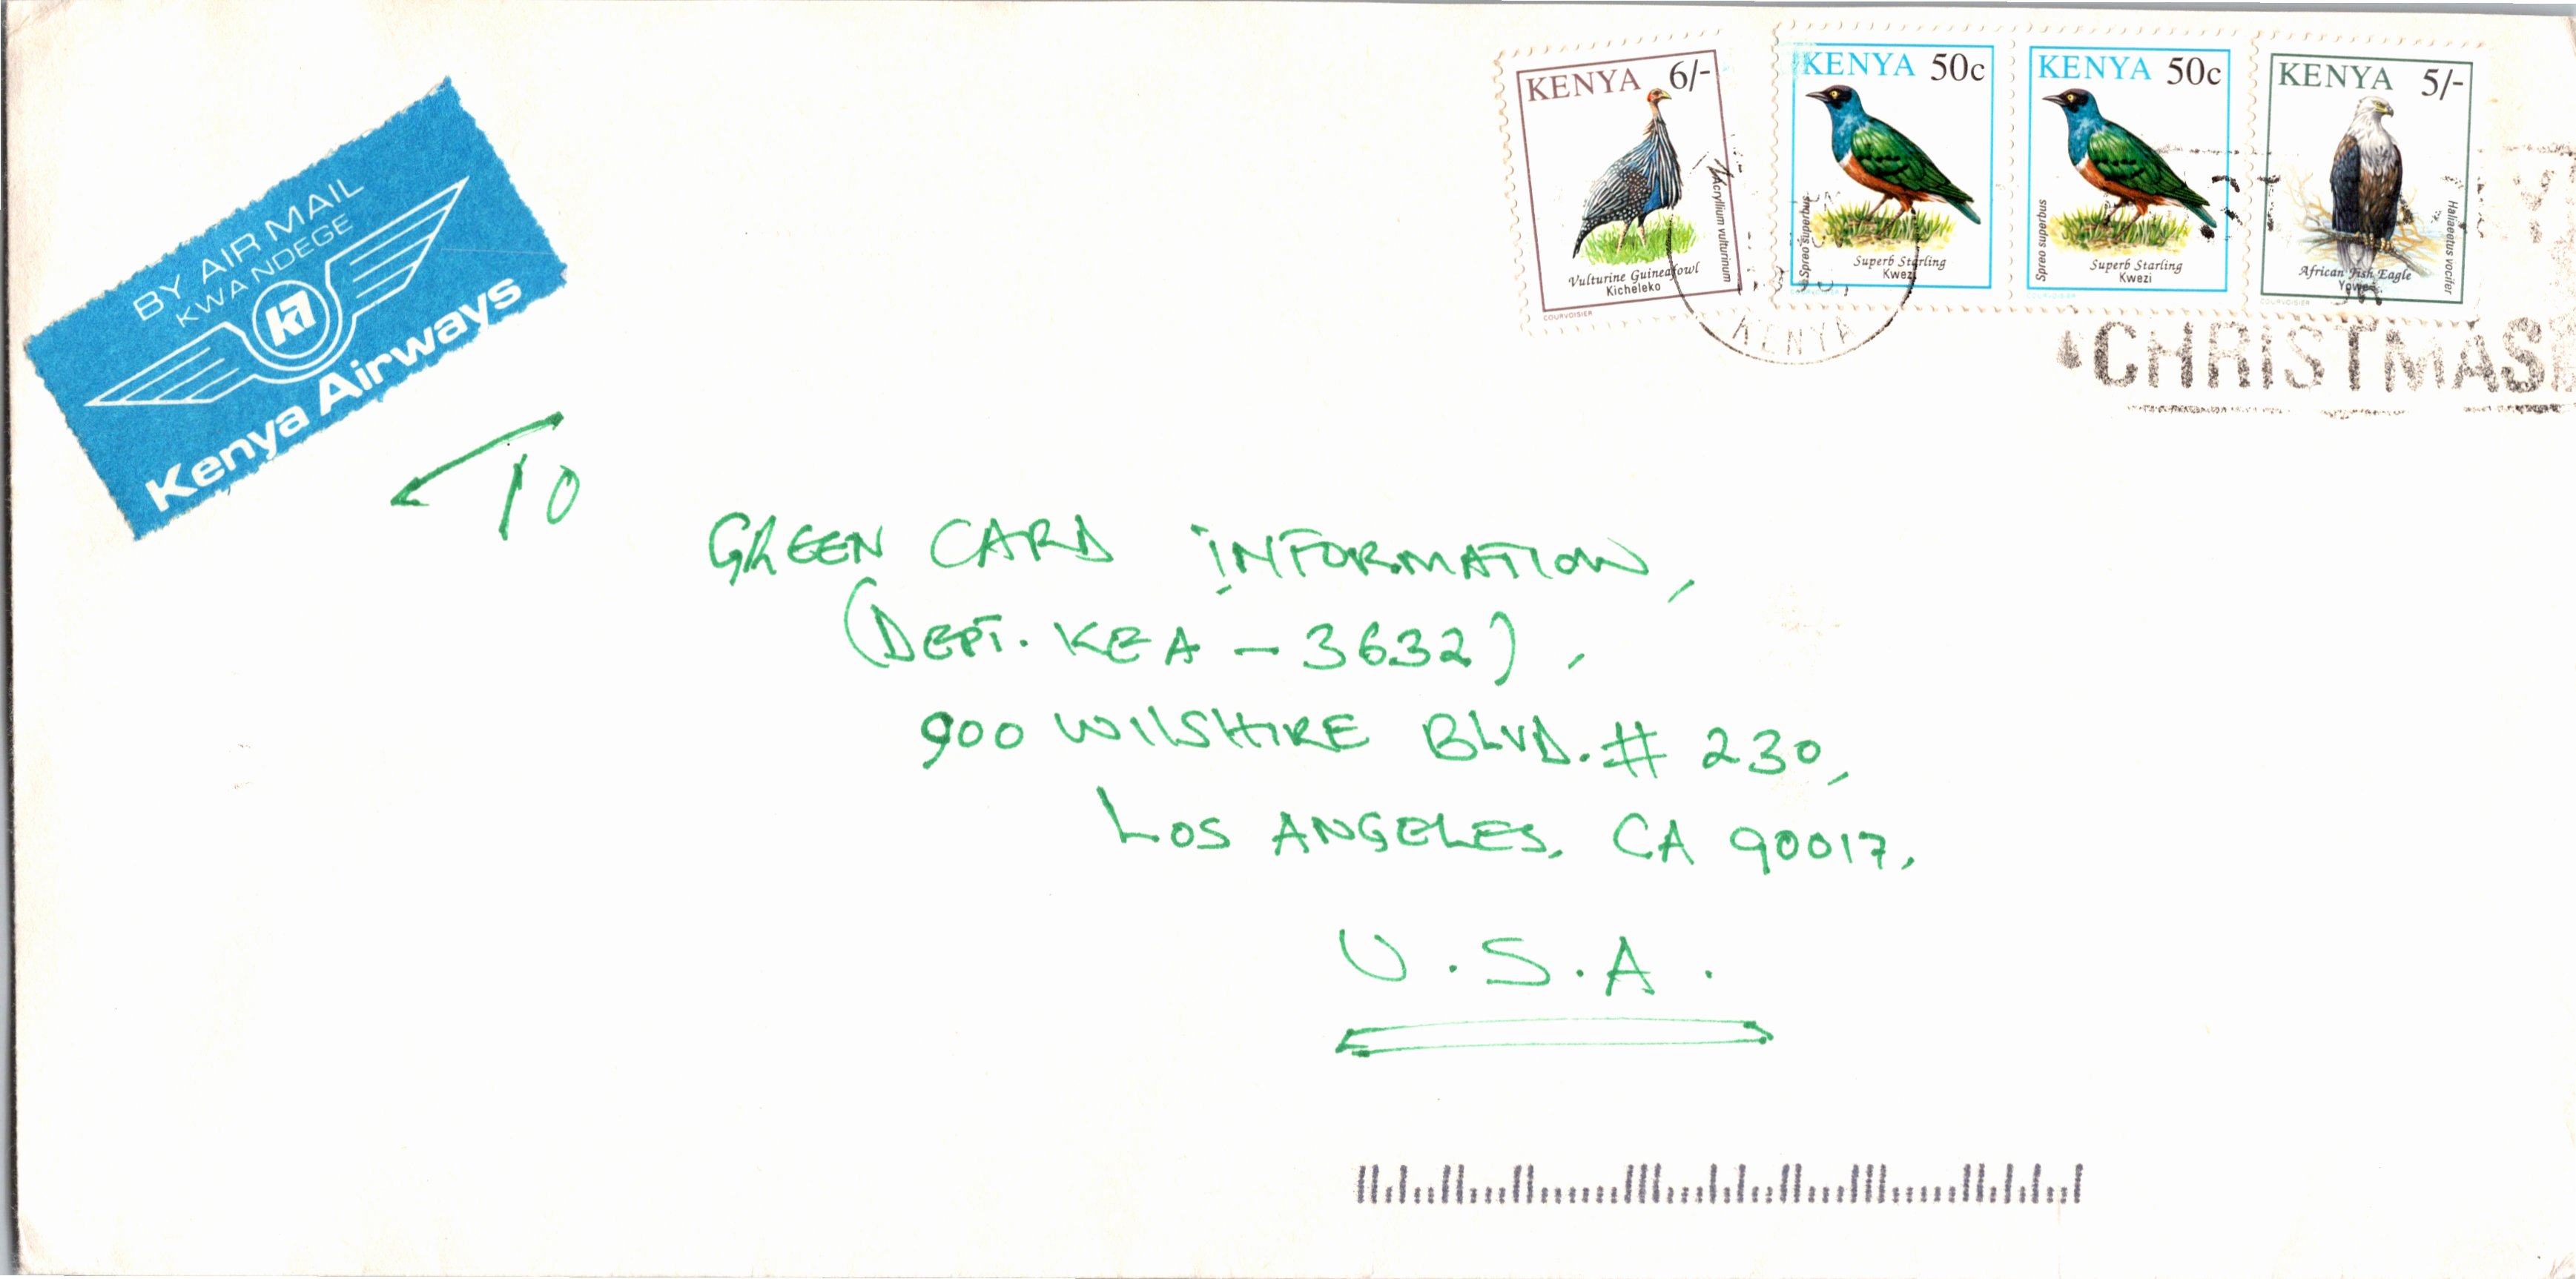 BY AIR MAIL
KWANDEGE
Kenya Airways
KENYA 6/-
Acryllium vulturinum
Vulturine Guineafowl
Kicheleko
COURVOISIER
KENYA 50c
Spreo superbus
Superb Starling
Kwezi
COURVOISIER
KENYA 50c
Spreo superbus
Superb Starling
Kwezi
COURVOISIER
KENYA 5/-
Haliaeetus vocifer
African Fish Eagle
COURVOISIER
KENYA
CHRISTMAS
TO
GREEN CARD INFORMATION,
(DEPT. KEA - 3632),
900 WILSHIRE BLVD. # 230,
LOS ANGELES, CA 90017,
U.S.A.